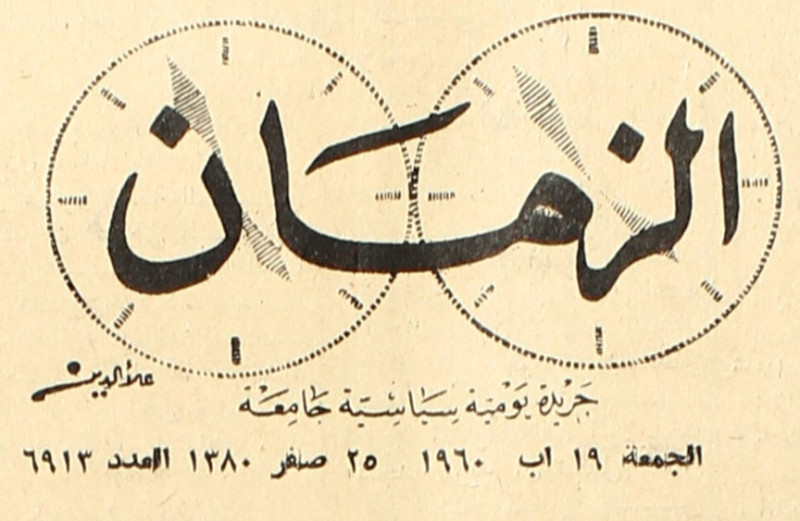 الزمان
علاءالدين
جَريْدة يَوْميّة سِيَاسِيّة جَامِعَة
الجمعة ١٩ اب ١٩٦٠ ٢٥ صفر ١٣٨٠ العدد ٦٩١٣